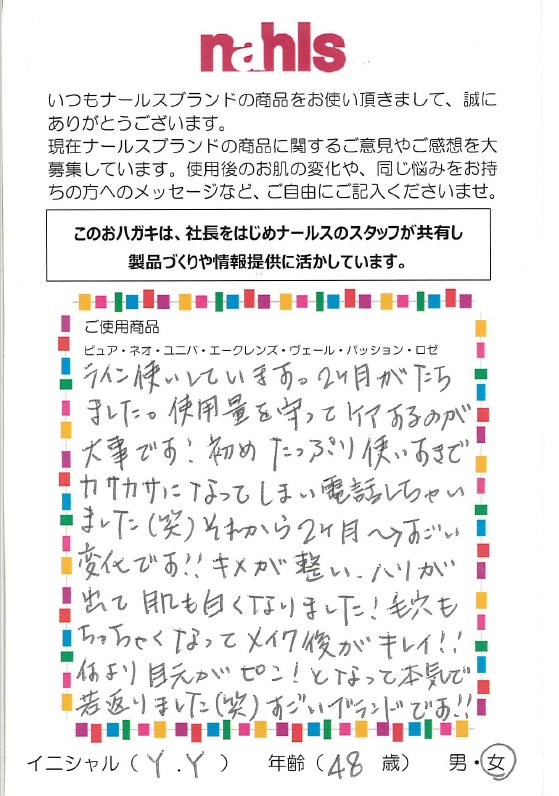 nahls
いつもナールスブランドの商品をお使い頂きまして、誠に
ありがとうございます。
現在ナールスブランドの商品に関するご意見やご感想を大
募集しています。使用後のお肌の変化や、同じ悩みをお持
ちの方へのメッセージなど、ご自由にご記入くださいませ。
このおハガキは、社長をはじめナールスのスタッフが共有し
製品づくりや情報提供に活かしています。
ご使用商品
ピュア・ネオ・ユニバ・エークレンズ・ヴェール・パッション・ロゼ
ライン使いしています。2ヶ月がたち
ました。使用量を守ってケアするのが
大事です！初めたっぷり使いすぎで
カサカサになってしまい電話しちゃい
ました(笑)それから2ヶ月へ→すごい
変化です!!キメが整い、ハリが
出て肌も白くなりました！毛穴も
ちっちゃくなってメイク後がキレイ!!
何より目元がピン！となって本気で
若返りました(笑)すごいブランドです!!
イニシャル（Y.Y） 年齢（48歳） 男・女